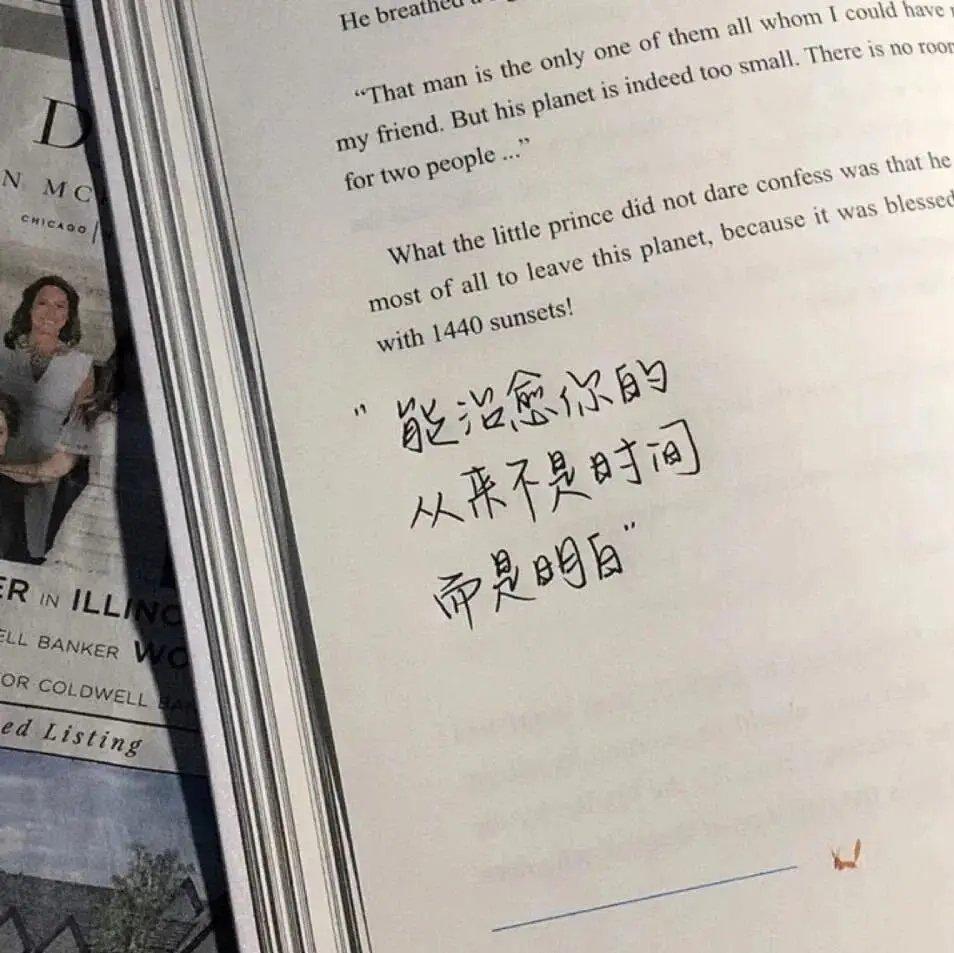 He breathed a
“That man is the only one of them all whom I could have
my friend. But his planet is indeed too small. There is no room
for two people ...”
What the little prince did not dare confess was that he
most of all to leave this planet, because it was blessed
with 1440 sunsets!
"能治愈你的
从来不是时间
而是明白"
D
N MC
CHICAGO
ER IN ILLINO
ELL BANKER WO
OR COLDWELL BAN
ed Listing